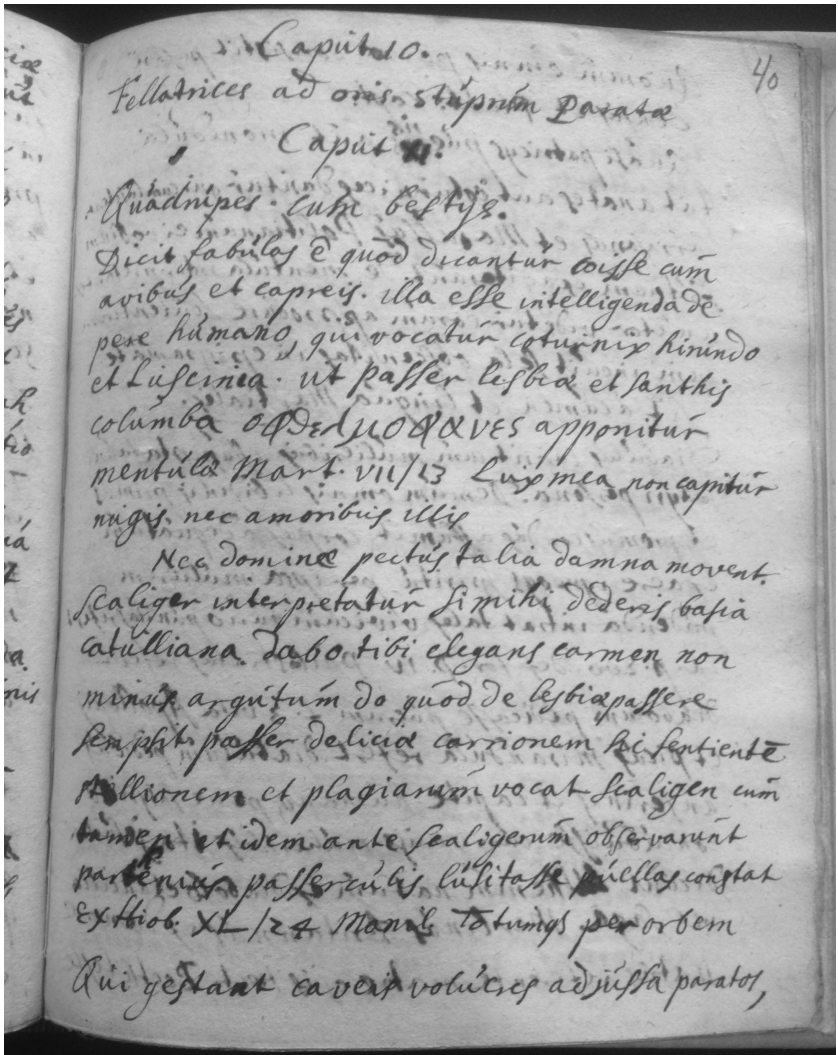 40
Caput 10.
Fellatrices ad oris stuprum Paratæ
Caput XI.
Quadrupes. cum bestijs.
Dicit fabulas ē quod dicantur coisse cum
avibus et capreis. illa esse intelligenda dē
pene humano, qui vocatur coturnix hirundo
et Luscinia. ut passer lesbiæ et santhis
columba apponitur
mentulæ Mart. VII/13 Luxmea non capitur
nugis nec amoribus illis
Nec dominæ pectus talia damna movent.
Scaliger interpretatur si mihi dederis basia
catulliana. dabo tibi elegans carmen non
minus argutum do quod de lesbiæ passere
sempsit passer deliciæ carrionem hic sentientē
stellionem et plagiarum vocat scaligen cum
tamen et idem ante scaligerum observarunt
partenius passerculis lusitasse puellas constat
ex XL/24 Manil. Totumqs per orbem
Qui gestant caveis volucres ad jussa paratos,